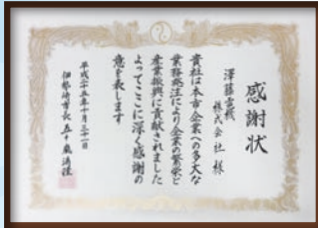 感謝状
澤藤電機
株式会社 様
貴社は本市企業への多大な
業務発注により企業の繁栄と
産業振興に貢献されました
よってここに深く感謝の
意を表します
平成二十五年十月三十一日
伊勢崎市長 五十嵐清隆